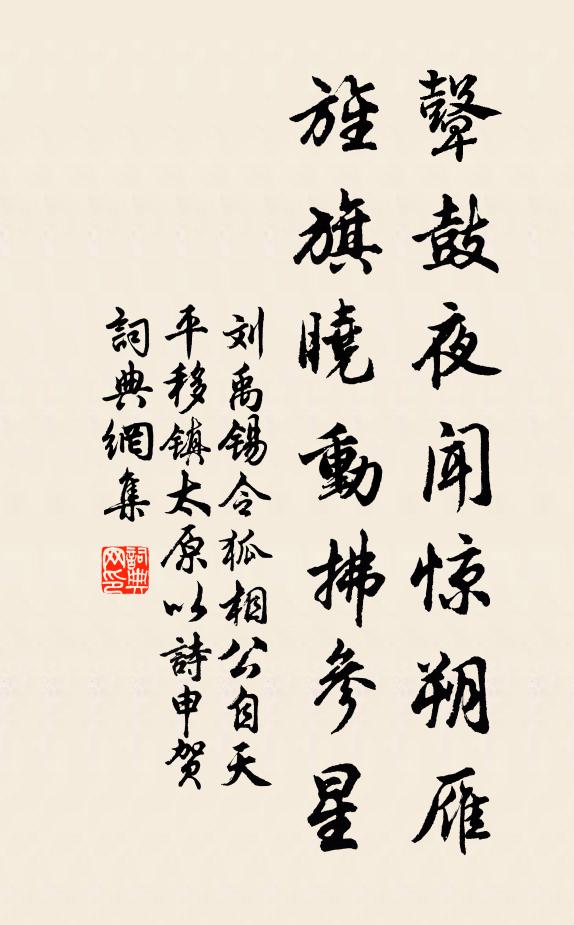 鼙鼓夜闻惊朔雁
旌旗曉動拂參星
刘禹锡令狐相公自天
平移镇太原以詩申贺
詞典網集
詞典网印